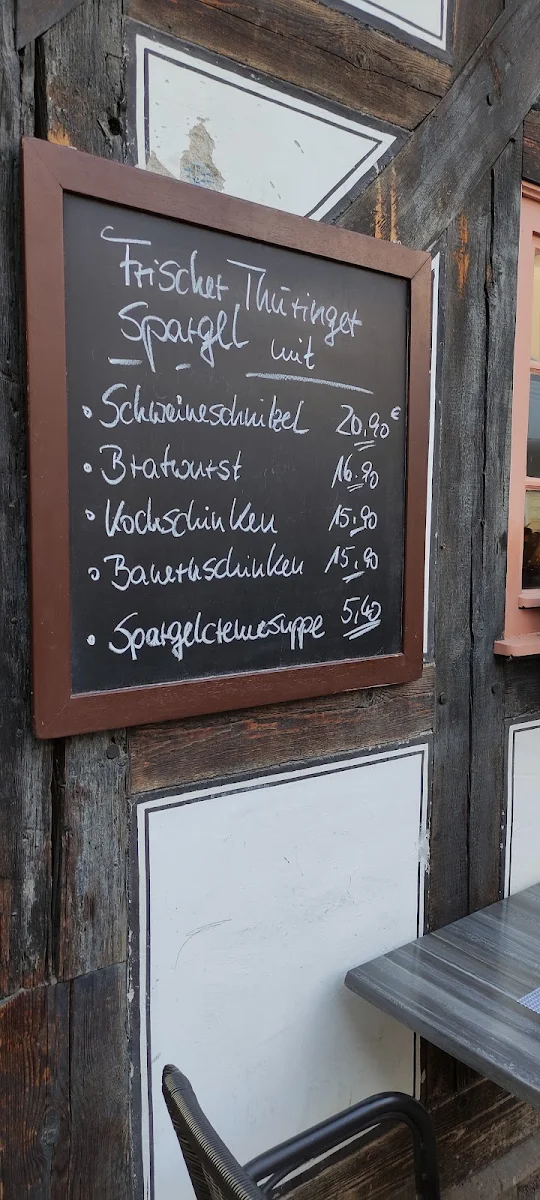 Frischer Thüringer
Spargel mit
Schweineschnitzel 20,90 €
Bratwurst 16,90
Kochschinken 15,90
Bauernschinken 15,90
Spargelcremesuppe 5,40